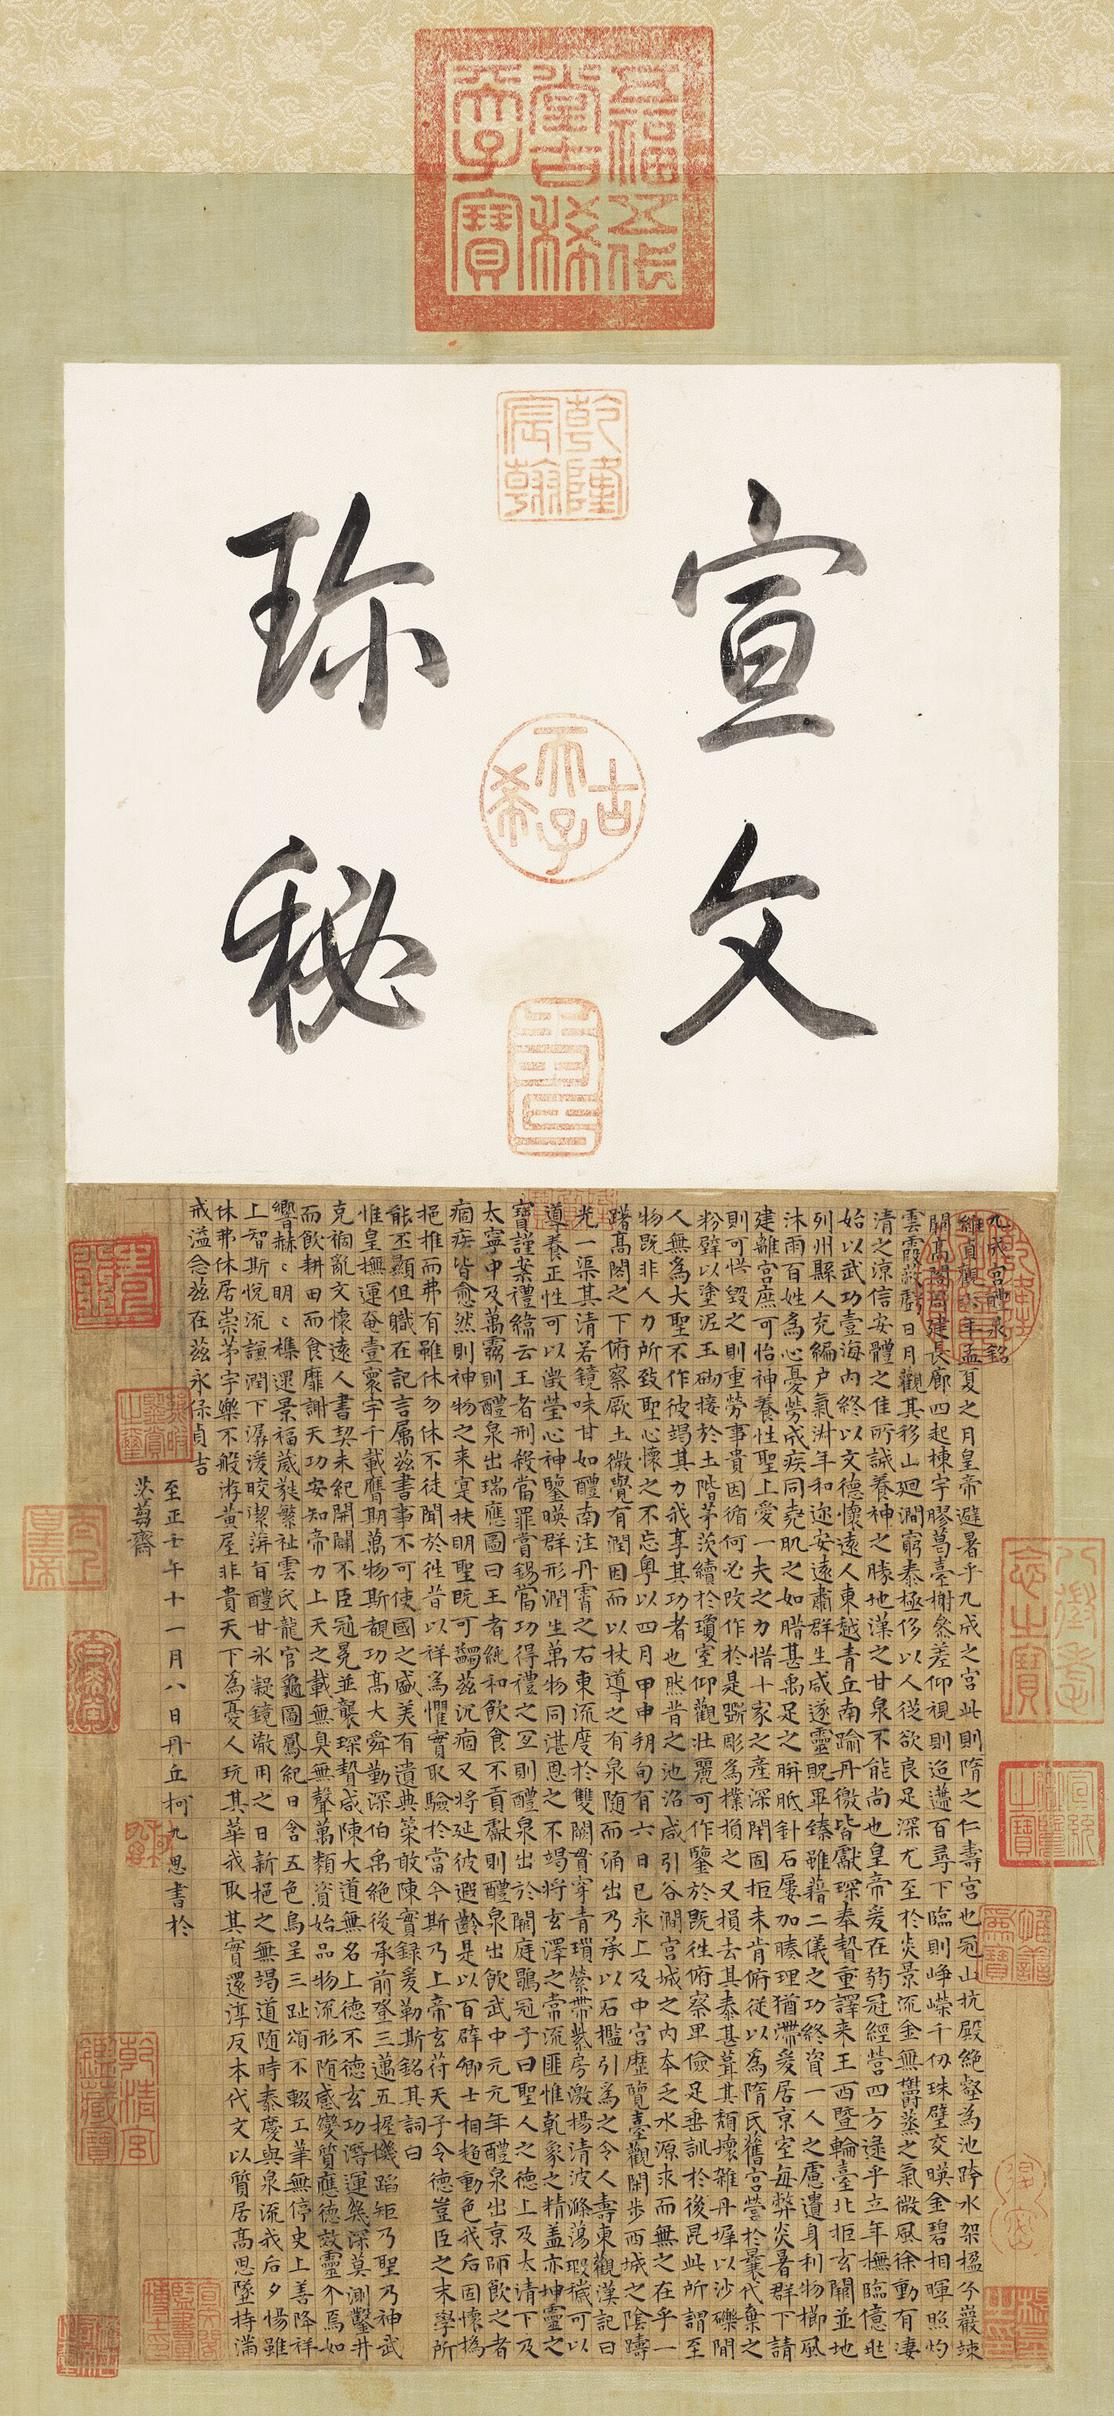 五福五代堂古稀天子寶
乾隆宸翰
宣文
珎秘
古希天子
九成宮醴泉銘
維貞觀六年孟夏之月皇帝避暑乎九成之宮此則隋之仁壽宮也冠山抗殿絕壑為池跨水架楹分巖竦
闕高閣周建長廊四起棟宇膠葛臺榭參差仰視則迢遞百尋下臨則崢嶸千仞珠璧交暎金碧相暉照灼
雲霞蔽虧日月觀其移山廻澗窮泰極侈以人從欲良足深尤至於炎景流金無鬱蒸之氣微風徐動有淒
清之涼信安體之佳所誠養神之勝地漢之甘泉不能尚也皇帝爰在弱冠經營四方逮乎立年撫臨億兆
始以武功壹海內終以文德懷遠人東越青丘南踰丹徼皆獻琛奉贄重譯来王西暨輪臺北拒玄闕並地
列州縣人充編戶氣淑年和迩安遠肅群生咸遂靈貺畢臻雖藉二儀之功終資一人之慮遺身利物櫛風
沐雨百姓為心憂勞成疾同堯肌之如腊甚禹足之胼胝針石屢加腠理猶滯爰居京室每弊炎暑群下請
建離宮庶可怡神養性聖上愛一夫之力惜十家之產深閉固拒未肯俯從以為隋氏舊宮營於曩代棄之
則可惜毀之則重勞事貴因循何必改作於是斲彫為樸損之又損去其泰甚葺其頹壞雜丹墀以沙礫間
粉壁以塗泥玉砌接於土階茅茨續於瓊室仰觀壯麗可作鑒於既往俯察卑儉足垂訓於後昆此所謂至
人無為大聖不作彼竭其力我享其功者也然昔之池沼咸引谷澗宮城之內本乏水源求而無之在乎一
物既非人力所致聖心懷之不忘粵以四月甲申朔旬有六日己亥上及中宮歷覽臺觀閑步西城之陰躊
躇高閣之下俯察厥土微覺有潤因而以杖導之有泉隨而涌出乃承以石檻引為之令人壽東觀漢記曰
光一渠其清若鏡味甘如醴南注丹霄之右東流度於雙闕貫穿青瑣縈帶紫房激揚清波滌蕩瑕穢可以
導養正性可以澂瑩心神鑒暎群形潤生萬物同湛恩之不竭將玄澤之常流匪惟乾象之精盖亦坤靈之
寶謹案禮緯云王者刑殺當罪賞錫當功得禮之宜則醴泉出於闕庭鶡冠子曰聖人之德上及太清下及
太寧中及萬靈則醴泉出瑞應圖曰王者純和飲食不貢獻則醴泉出飲武中元元年醴泉出京師飲之者
痼疾皆愈然則神物之来寔扶明聖既可蠲茲沉痼又將延彼遐齡是以百辟卿士相趨動色我后固懷撝
挹推而弗有雖休勿休不徒聞於往昔以祥為懼實取驗於當今斯乃上帝玄符天子令德豈臣之末學所
能丕顯但職在記言屬茲書事不可使國之盛美有遺典策敢陳實錄爰勒斯銘其詞曰
惟皇撫運奄壹寰宇千載膺期萬物斯覩功高大舜勤深伯禹絕後承前登三邁五握機蹈矩乃聖乃神武
克禍亂文懷遠人書契未紀開闢不臣冠冕並襲琛贄咸陳大道無名上德不德玄功潛運幾深莫測鑿井
而飲耕田而食靡謝天功安知帝力上天之載無臭無聲萬類資始品物流形隨感變質應德效靈介焉如
響赫〻明〻雜遝景福葳蕤繁祉雲氏龍官龜圖鳳紀日含五色烏呈三趾頌不輟工筆無停史上善降祥
上智斯悅流謙潤下潺湲皎潔蓱旨醴甘冰凝鏡澈用之日新挹之無竭道隨時泰慶與泉流我后夕惕雖
休弗休居崇茅宇樂不般游黃屋非貴天下為憂人玩其華我取其實還淳反本代文以質居高思墜持滿
戒溢念茲在茲永保貞吉
至正壬午十一月八日丹丘柯九思書於
齋
太上皇帝
八徵耄念之寶
宣統御覽之寶
乾清宮鑒藏寶